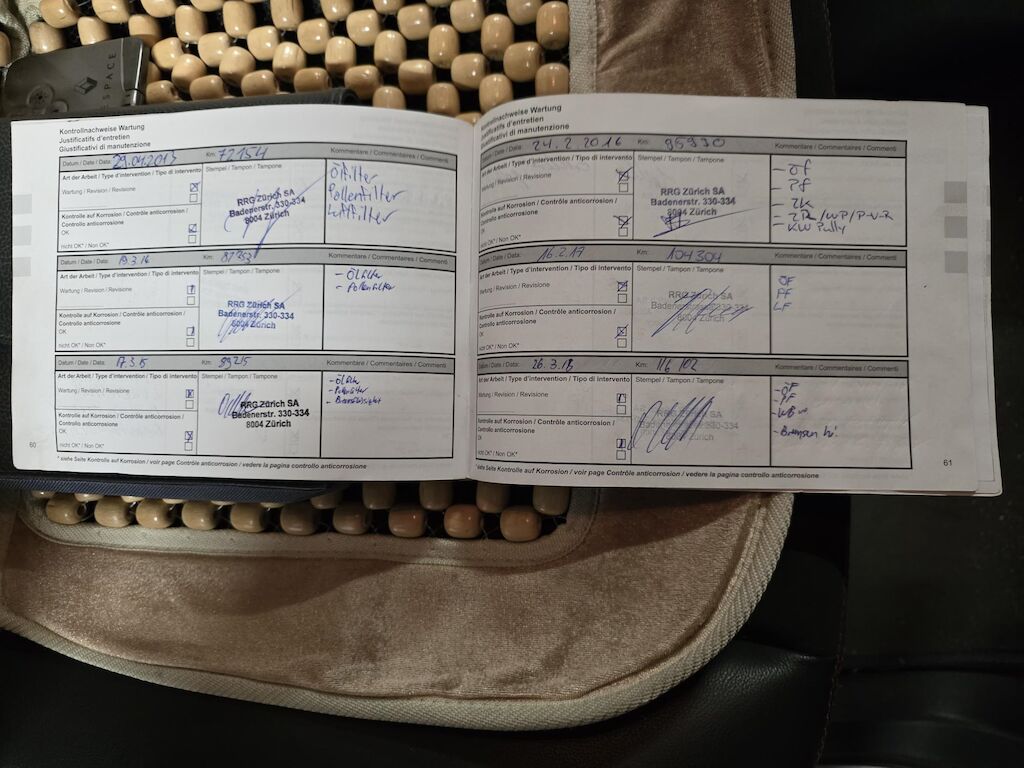 ESPACE
Kontrollnachweise Wartung
Justificatifs d'entretien
Giustificativi di manutenzione
Datum / Date / Data: 29.04.2013 Km: 72154 Kommentare / Commentaires / Commenti
Art der Arbeit / Type d'intervention / Tipo di intervento
Stempel / Tampon / Tampone
Wartung / Revision / Revisione
Kontrolle auf Korrosion / Contrôle anticorrosion /
Controllo anticorrosione
OK
nicht OK* / Non OK*
RRG Zürich SA
Badenerstr. 330-334
8004 Zürich
Ölfilter
Pollenfilter
Luftfilter
Datum / Date / Data: Km: Kommentare / Commentaires / Commenti
Art der Arbeit / Type d'intervention / Tipo di intervento
Stempel / Tampon / Tampone
Wartung / Revision / Revisione
Kontrolle auf Korrosion / Contrôle anticorrosion /
Controllo anticorrosione
OK
nicht OK* / Non OK*
RRG Zürich SA
Badenerstr. 330-334
8004 Zürich
- Ölfilter
- Pollenfilter
Datum / Date / Data: 17.3.15 Km: 89215 Kommentare / Commentaires / Commenti
Art der Arbeit / Type d'intervention / Tipo di intervento
Stempel / Tampon / Tampone
Wartung / Revision / Revisione
Kontrolle auf Korrosion / Contrôle anticorrosion /
Controllo anticorrosione
OK
nicht OK* / Non OK*
RRG Zürich SA
Badenerstr. 330-334
8004 Zürich
- Ölfilter
- Pollenfilter
* siehe Seite Kontrolle auf Korrosion / voir page Contrôle anticorrosion / vedere la pagina controllo anticorrosione
60
Kontrollnachweise Wartung
Justificatifs d'entretien
Giustificativi di manutenzione
Datum / Date / Data: 24.2.2016 Km: 95930 Kommentare / Commentaires / Commenti
Art der Arbeit / Type d'intervention / Tipo di intervento
Stempel / Tampon / Tampone
Wartung / Revision / Revisione
Kontrolle auf Korrosion / Contrôle anticorrosion /
Controllo anticorrosione
OK
nicht OK* / Non OK*
RRG Zürich SA
Badenerstr. 330-334
8004 Zürich
- ÖF
- PF
- ZK
- ZR / WP / P-V-R
- KW Pully
Datum / Date / Data: 16.2.17 Km: 104304 Kommentare / Commentaires / Commenti
Art der Arbeit / Type d'intervention / Tipo di intervento
Stempel / Tampon / Tampone
Wartung / Revision / Revisione
Kontrolle auf Korrosion / Contrôle anticorrosion /
Controllo anticorrosione
OK
nicht OK* / Non OK*
RRG Zürich SA
Badenerstr. 330-334
8004 Zürich
ÖF
PF
LF
Datum / Date / Data: 26.3.18 Km: 116 102 Kommentare / Commentaires / Commenti
Art der Arbeit / Type d'intervention / Tipo di intervento
Stempel / Tampon / Tampone
Wartung / Revision / Revisione
Kontrolle auf Korrosion / Contrôle anticorrosion /
Controllo anticorrosione
OK
nicht OK* / Non OK*
RRG Zürich SA
Badenerstr. 330-334
8004 Zürich
- ÖF
- PF
- Bremsen hi.
* siehe Seite Kontrolle auf Korrosion / voir page Contrôle anticorrosion / vedere la pagina controllo anticorrosione
61